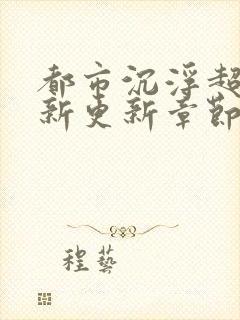 都市沉浮超
新更新章節
程藝